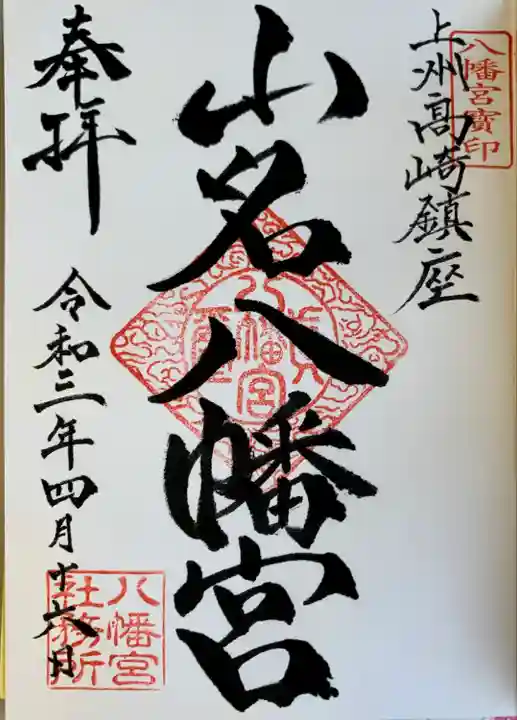 八幡宮寶印
上州高崎鎮座
山名八幡宮
奉拝
令和三年四月十六月
八幡宮
社務所